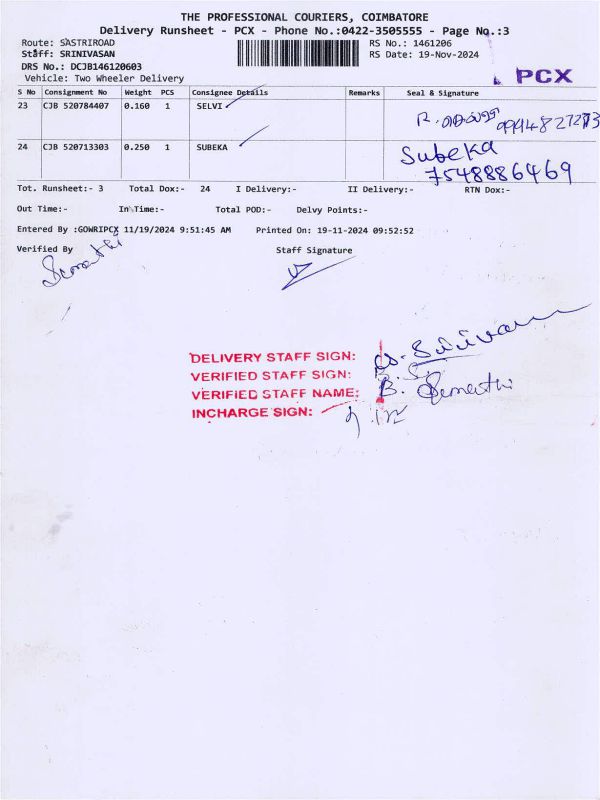 THE PROFESSIONAL COURIERS, COIMBATORE
Delivery Runsheet - PCX - Phone No.:0422-3505555 - Page No.:3
Route: SASTRIROAD RS No.: 1461206
Staff: SRINIVASAN RS Date: 19-Nov-2024
DRS No.: DCJB146120603
Vehicle: Two Wheeler Delivery PCX
S No Consignment No Weight PCS Consignee Details Remarks Seal & Signature
23 CJB 520784407 0.160 1 SELVI R. 9994827273
24 CJB 520713303 0.250 1 SUBEKA Subeka
7548886469
Tot. Runsheet:- 3 Total Dox:- 24 I Delivery:- II Delivery:- RTN Dox:-
Out Time:- In Time:- Total POD:- Delvy Points:-
Entered By :GOWRIPCX 11/19/2024 9:51:45 AM Printed On: 19-11-2024 09:52:52
Verified By Staff Signature
Sumathi
DELIVERY STAFF SIGN:
VERIFIED STAFF SIGN:
VERIFIED STAFF NAME: B. Sumathi
INCHARGE SIGN: